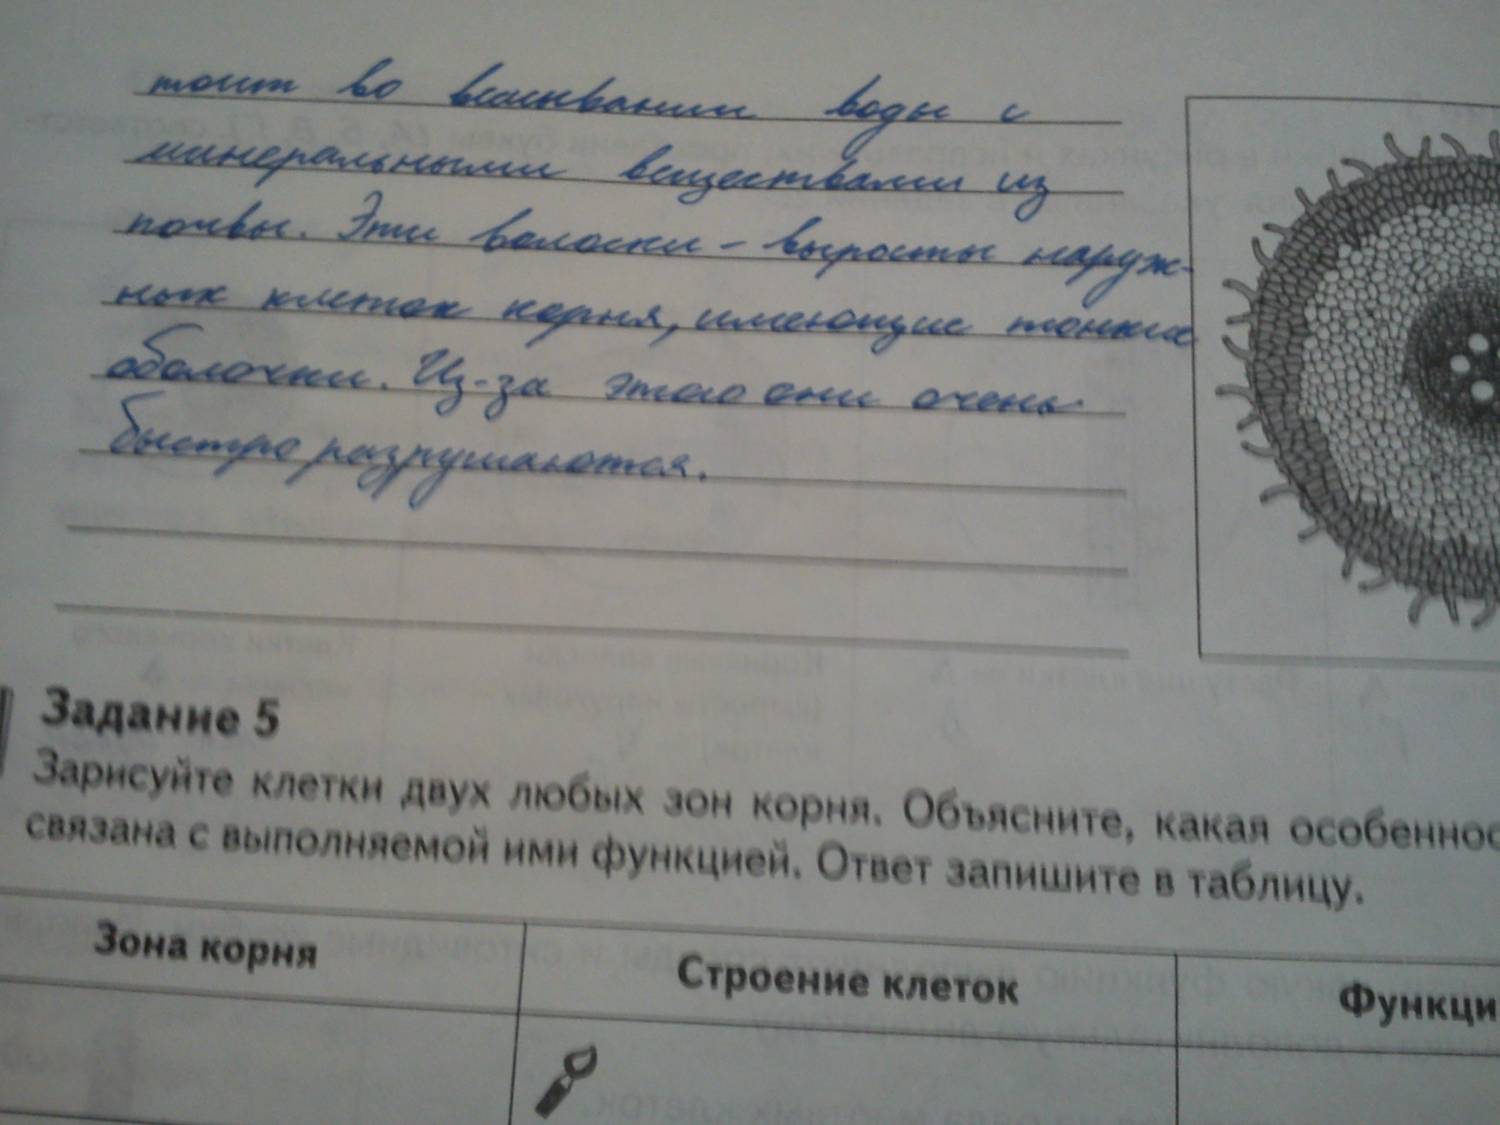 тоит во всасывании воды с
минеральными веществами из
почвы. Эти волоски – выросты наруж-
ных клеток корня, имеющие тонкие
оболочки. Из-за этого они очень
быстро разрушаются.
Задание 5
Зарисуйте клетки двух любых зон корня. Объясните, какая особеннос
связана с выполняемой ими функцией. Ответ запишите в таблицу.
Зона корня
Строение клеток
Функци